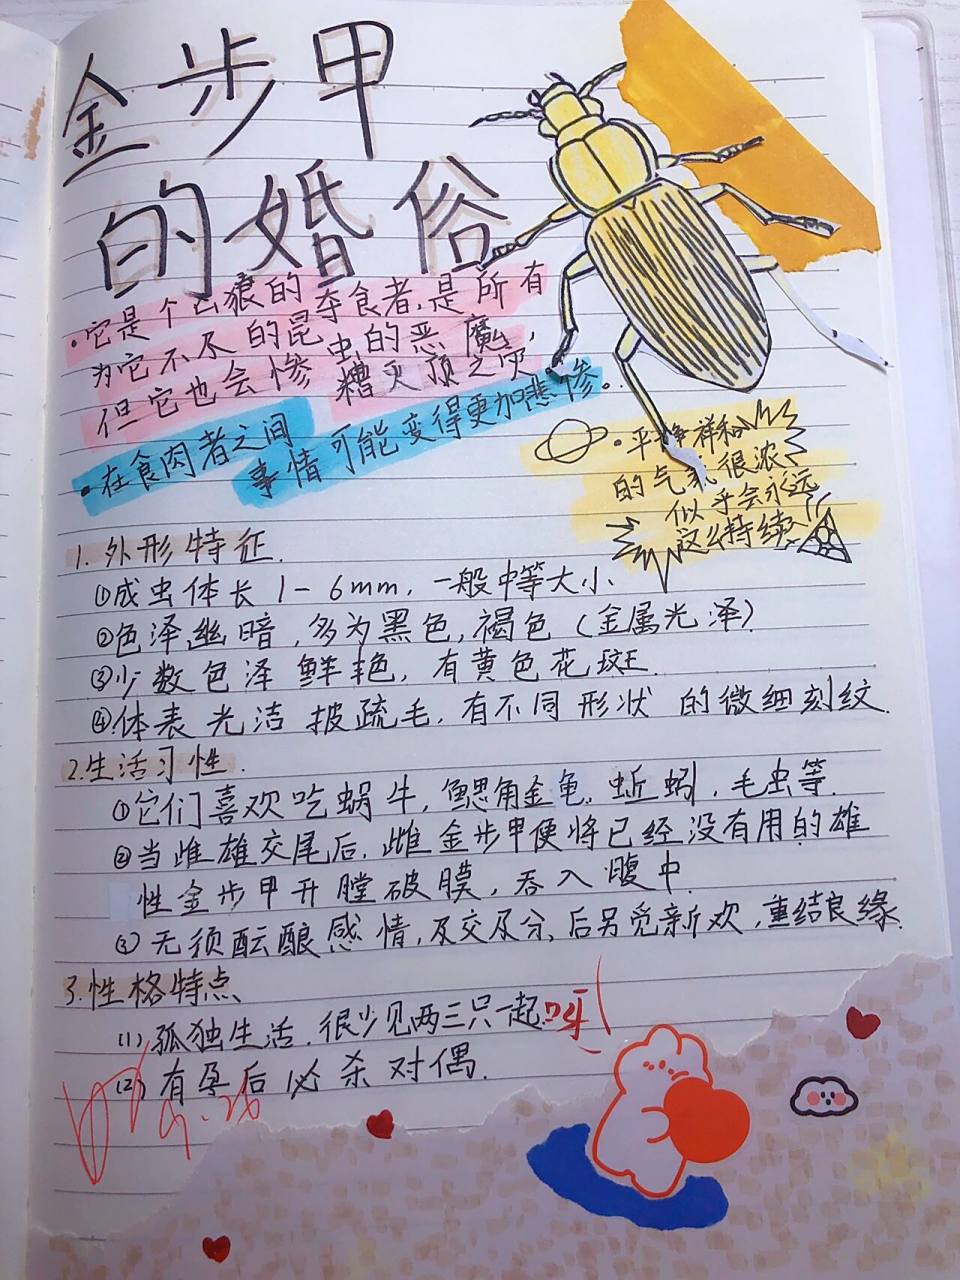 金步甲
的婚俗
·它是个凶狠的夺食者,是所有
为它不及的昆虫的恶魔,
但它也会惨糟灭顶之灾
·在食肉者之间
事情可能变得更加悲惨。
·平静祥和
的气氛很浓
似乎会永远
这么持续
1.外形特征.
①成虫体长1-6mm,一般中等大小
②色泽幽暗,多为黑色,褐色(金属光泽)
③少数色泽鲜艳,有黄色花斑
④体表光洁披疏毛,有不同形状的微细刻纹.
2.生活习性.
①它们喜欢吃蜗牛,鳃角金龟,蚯蚓,毛虫等.
②当雌雄交尾后,雌金步甲便将已经没有用的雄
性金步甲开膛破膜,吞入腹中.
③无须酝酿感情,及交及分,后另觅新欢,重结良缘.
3.性格特点
(1)孤独生活.很少见两三只一起.
(2)有孕后必杀对偶.
9.26